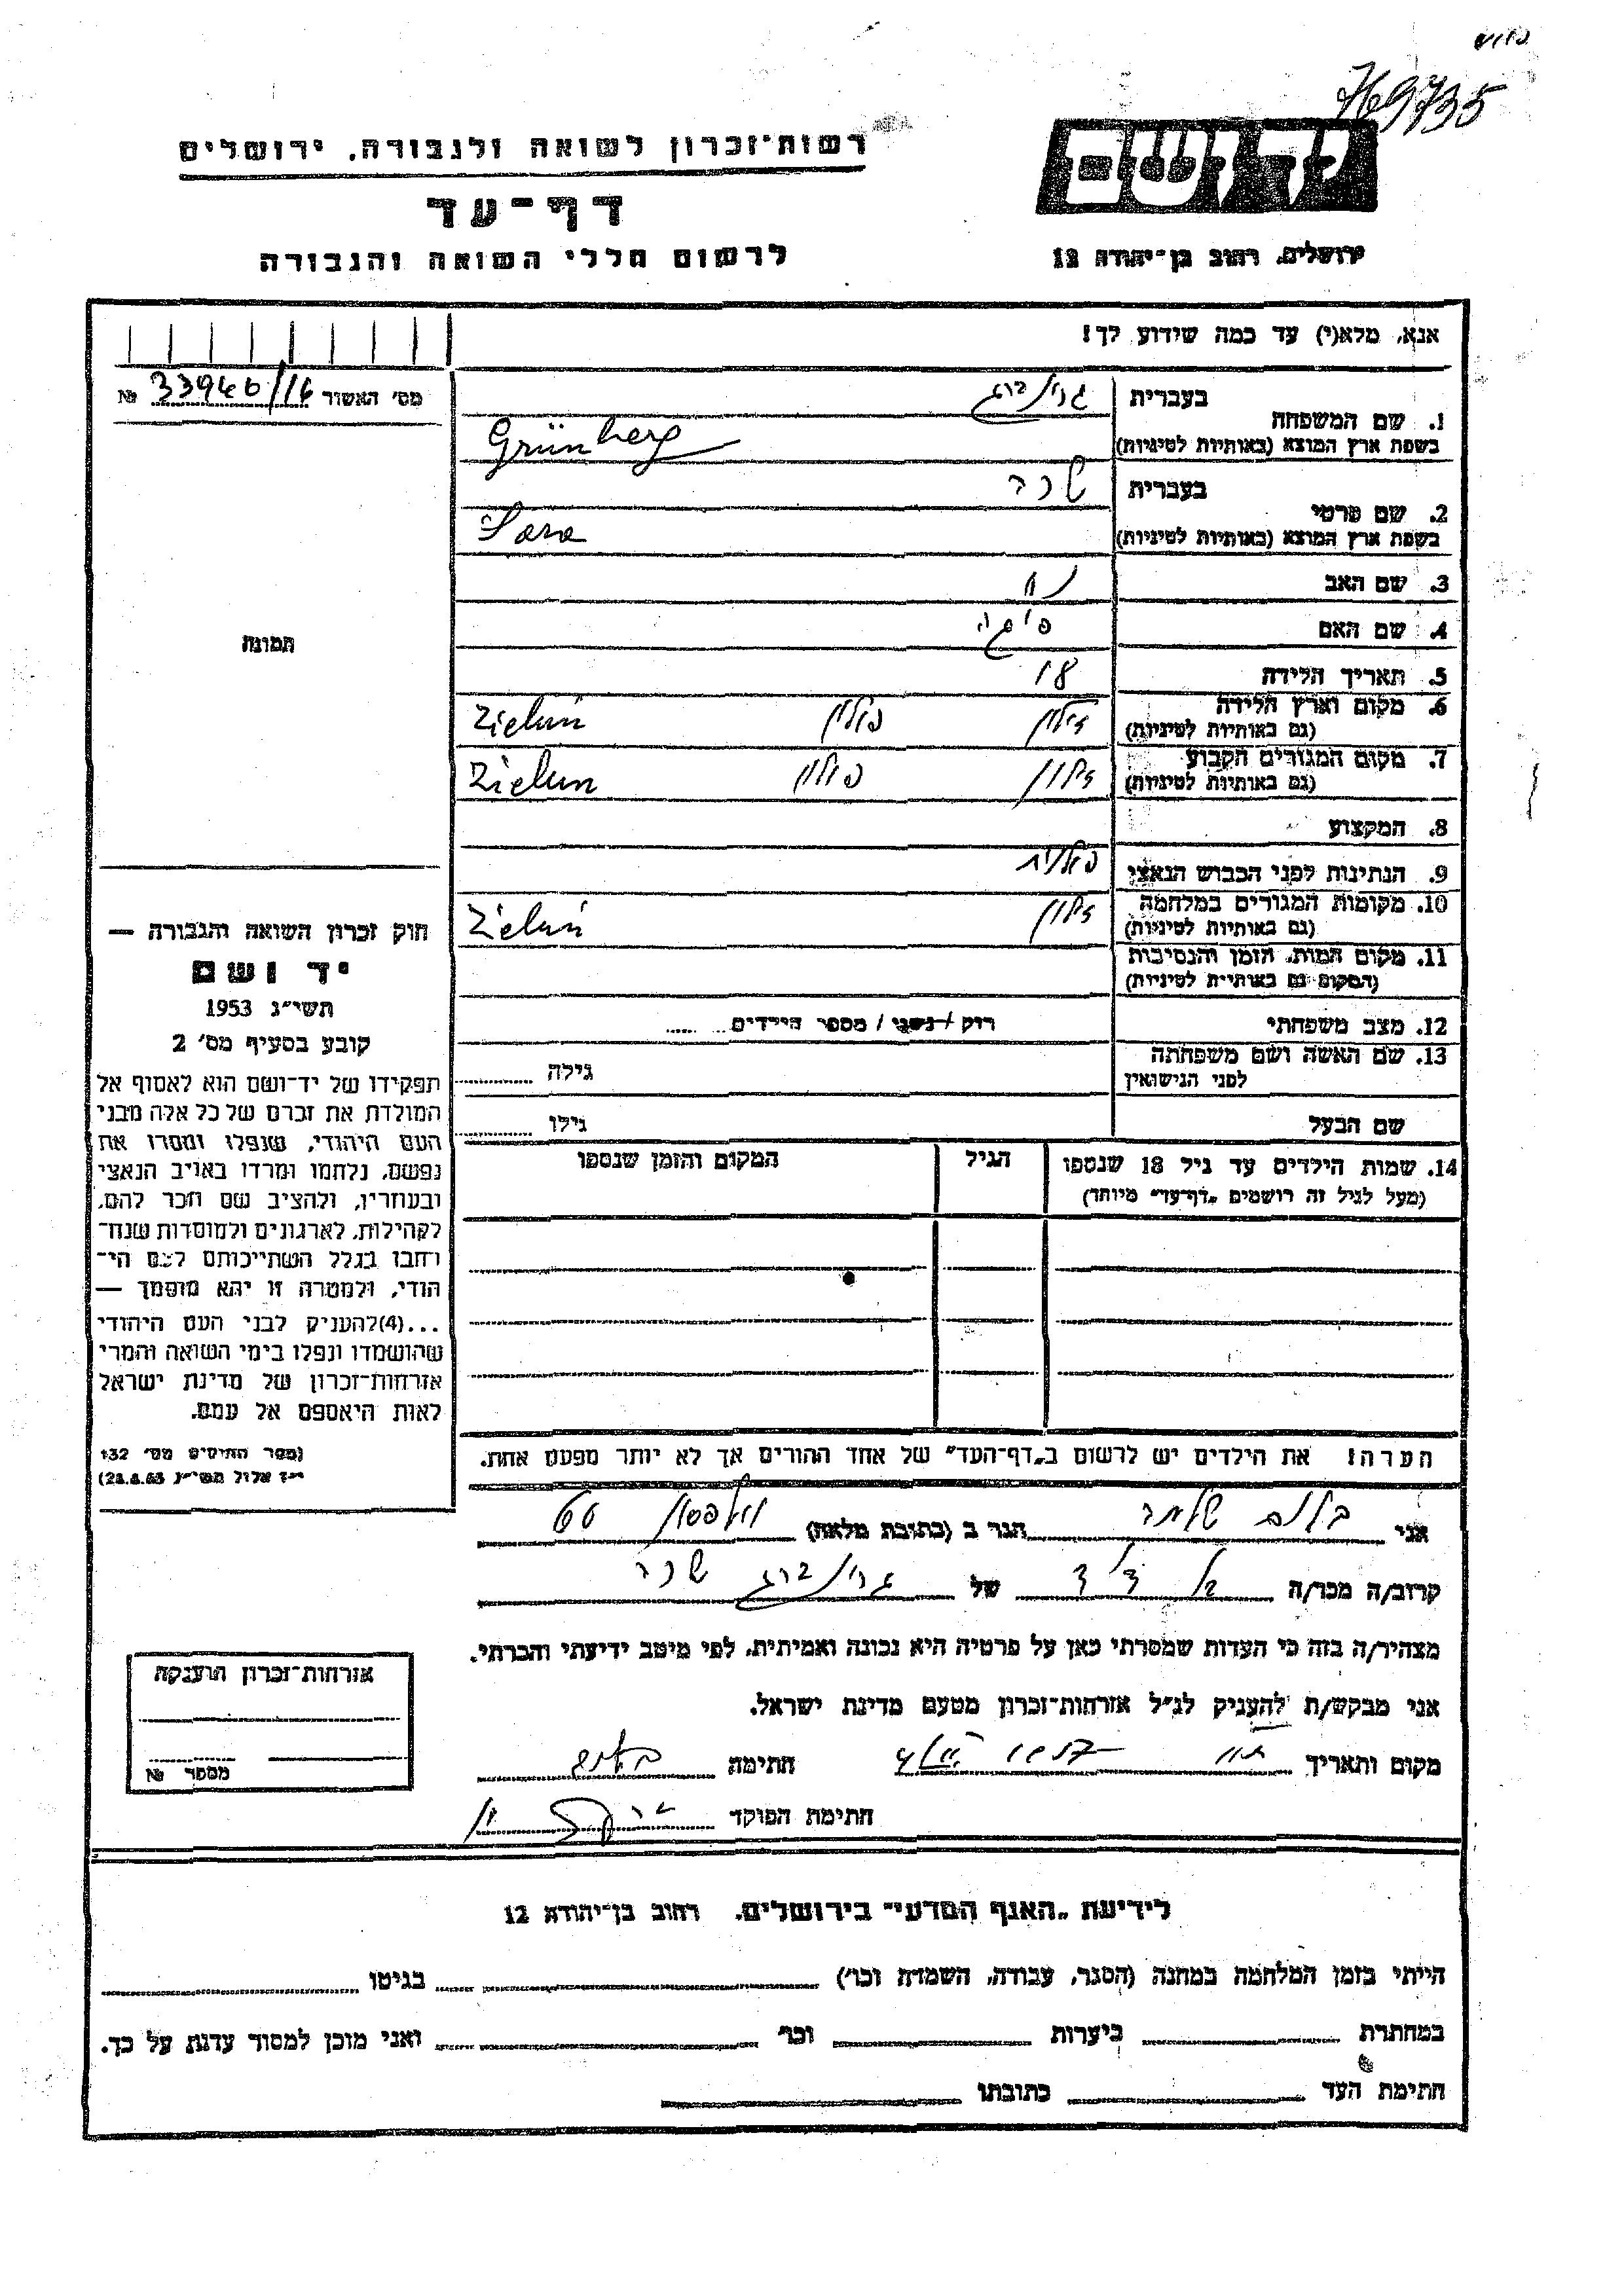 769735
רשות־זכרון לשואה ולגבורה, ירושלים
יד ושם
דף־עד
לרשום חללי השואה והגבורה
ירושלים, רחוב בן־יהודה 12
אנא, מלא(י) עד כמה שידוע לך!
מס׳ האשור 33946/16 №
1. שם המשפחה
בעברית גרינברג
בשפת ארץ המוצא (באותיות לטיניות) Grünberg
2. שם פרטי
בעברית שרה
בשפת ארץ המוצא (באותיות לטיניות) Sara
3. שם האב
4. שם האם
5. תאריך הלידה 18
6. מקום וארץ הלידה
(גם באותיות לטיניות) פולין Zieluń
7. מקום המגורים הקבוע
(גם באותיות לטיניות) פולין Zielun
8. המקצוע
9. הנתינות לפני הכבוש הנאצי פולנית
10. מקומות המגורים במלחמה
(גם באותיות לטיניות) Zieluń
11. מקום המות, הזמן והנסיבות
(המקום גם באותיות לטיניות)
12. מצב משפחתי רוק / נשוי / מספר הילדים
13. שם האשה ושם משפחתה
לפני הנישואין גילה
שם הבעל גילו
14. שמות הילדים עד גיל 18 שנספו הגיל המקום והזמן שנספו
(מעל לגיל זה רושמים „דף־עד״ מיוחד)
הערה! את הילדים יש לרשום ב„דף־העד״ של אחד ההורים אך לא יותר מפעם אחת.
תמונה
חוק זכרון השואה והגבורה —
יד ושם
תשי״ג 1953
קובע בסעיף מס׳ 2
תפקידו של יד־ושם הוא לאסוף אל
המולדת את זכרם של כל אלה מבני
העם היהודי, שנפלו ומסרו את
נפשם, נלחמו ומרדו באויב הנאצי
ובעוזריו, ולהציב שם וזכר להם,
לקהילות, לארגונים ולמוסדות שנח־
רחבו בגלל השתייכותם לעם הי־
הודי, ולמטרה זו יהא מוסמך —
...(4)להעניק לבני העם היהודי
שהושמדו ונפלו בימי השואה והמרי
אזרחות־זכרון של מדינת ישראל
לאות היאספם אל עמם.
(ספר החוקים מס׳ 132
י״ז אלול תשי״ג 28.8.53)
אני הגר ב (כתובת מלאה) 66
קרוב/ה מכר/ה של גרינברג שרה
מצהיר/ה בזה כי העדות שמסרתי כאן על פרטיה היא נכונה ואמיתית, לפי מיטב ידיעתי והכרתי.
אני מבקש/ת להעניק לנ״ל אזרחות־זכרון מטעם מדינת ישראל.
מקום ותאריך חתימה
חתימת הפוקד
אזרחות־זכרון הוענקה
מספר №
לידיעת „האגף המדעי״ בירושלים, רחוב בן־יהודה 12
הייתי בזמן המלחמה במחנה (הסגר, עבודה, השמדה וכו׳) בגיטו
במחתרת ביערות וכו׳ ואני מוכן למסור עדות על כך.
חתימת העד כתובתו